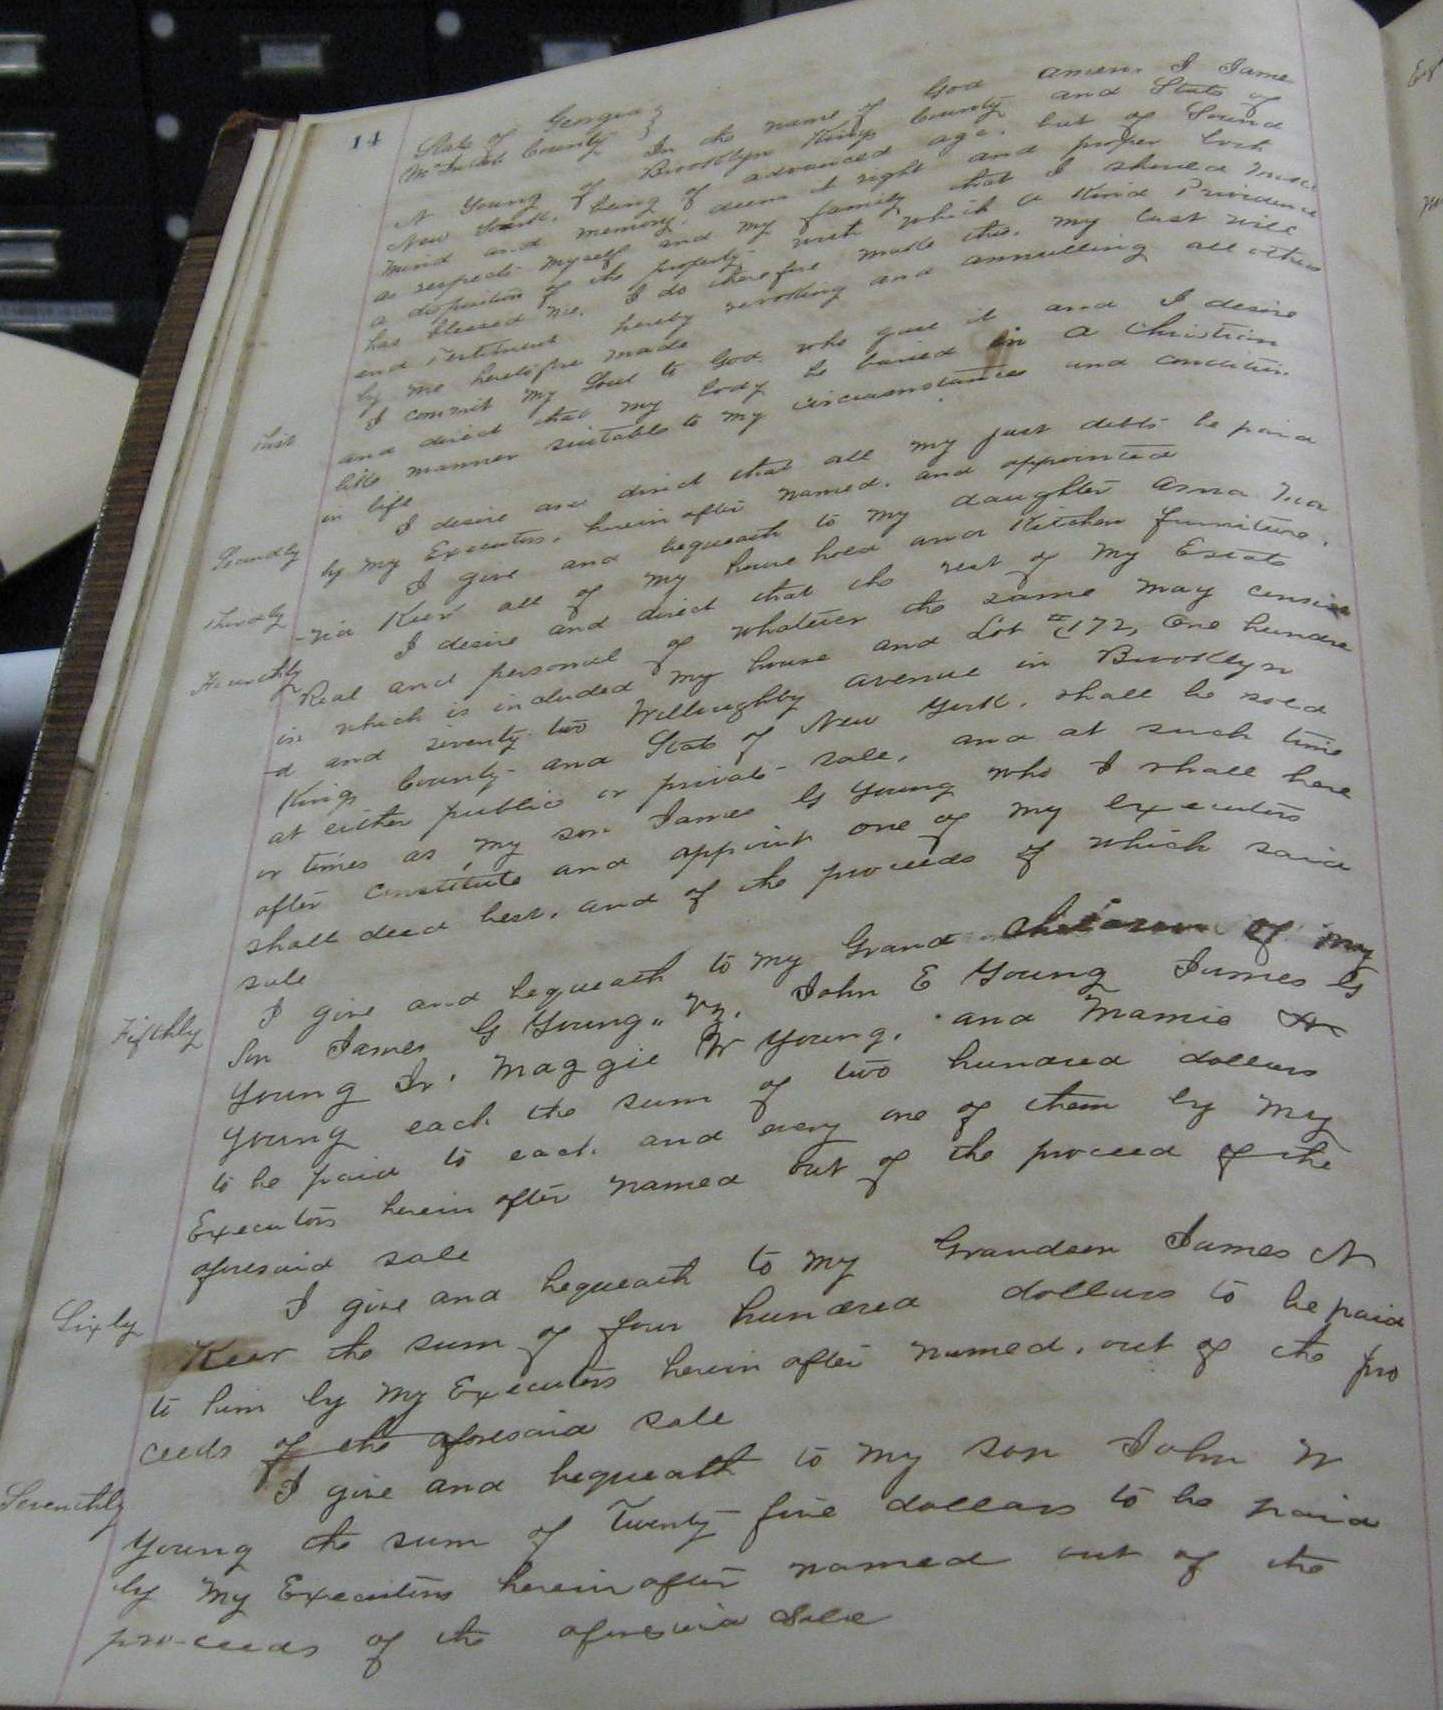 14
State of Georgia }
McIntosh County } In the name of God amen. I James
N Young of Brooklyn Kings County and State of
New York, being of advanced age, but of Sound
mind and memory. deem it right and proper both
as respects myself and my family, that I should make
a disposition of the property with which a Kind Providence
has blessed me. I do therefore make this, my last will
and Testiment hereby revoking and annulling all others
by me heretofore made
First I commit my Soul to God who gave it and I desire
and direct that my body be buried in a Christian
like manner suitable to my circumstances and condition
in life
Secondly I desire and direct that all my just debts be paid
by my Executors, herein after named, and appointed
Thirdly I give and bequeath to my daughter Anna Mar
-ria Kerr all of my house hold and Kitchen furniture.
Fourthly I desire and direct that the rest of my Estate
Real and personal of whatever the same may consist
in which is included my house and Lot 172, One hundre
-d and seventy two Willoughby avenue in Brooklyn
Kings County and State of New York, shall be sold
at either public or private sale, and at such time
or times as my son James G Young who I shall here
after constitute and appoint one of my executors
shall deed best, and of the proceeds of which said
sale
Fifthly I give and bequeath to my Grand children of my
Son James G Young,, vz. John E Young James G
Young Jr. Maggie W Young, and Mamie
Young each the sum of two hundred dollars
to be paid to each and every one of them by my
Executors herein after named out of the proceed of the
aforesaid sale
Sixly I give and bequeath to my Grandson James N
Kerr the sum of four hundred dollars to be paid
to him by my Executors herein after named, out of the pro
ceeds of the aforesaid sale
Seventhly I give and bequeath to my son John W
Young the sum of Twenty five dollars to be paid
by my Executors herein after named out of the
pro-ceeds of the aforesaid Sale